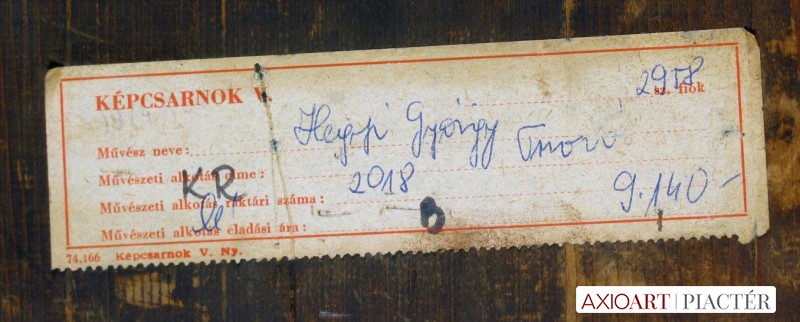 KÉPCSARNOK V.
2958
sz. fiók
Művész neve: Hegyi György
Művészeti alkotás címe:
KR
Művészeti alkotás raktári száma: 2018
Művészeti alkotás eladási ára: B 9.140-
74,166 Képcsarnok V. Ny.
AXIOART | PIACTÉR